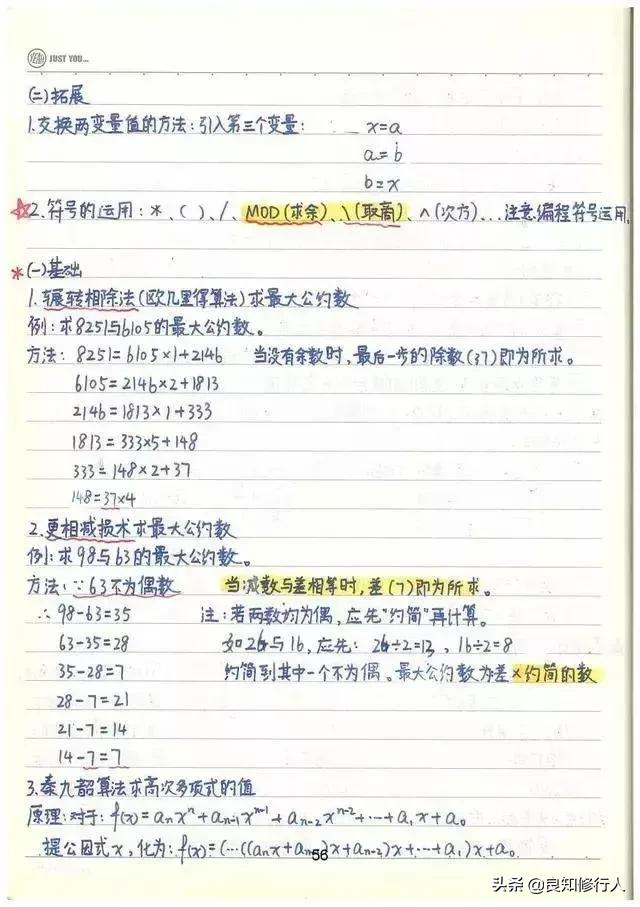 JUST YOU...
(二)拓展
1.交换两变量值的方法:引入第三个变量: x=a
a=b
b=x
☆2.符号的运用:*、( )、/、MOD(求余)、\(取商)、∧(次方)...注意编程符号运用.
*(一)基础
1.辗转相除法(欧几里得算法)求最大公约数
例:求8251与6105的最大公约数。
方法: 8251=6105×1+2146 当没有余数时,最后一步的除数(37)即为所求。
6105=2146×2+1813
2146=1813×1+333
1813=333×5+148
333=148×2+37
148=37×4
2.更相减损术求最大公约数
例:求98与63的最大公约数。
方法:∵63不为偶数 当减数与差相等时,差(7)即为所求。
∴98-63=35 注:若两数均为偶,应先"约简"再计算。
63-35=28 如26与16,应先: 26÷2=13, 16÷2=8
35-28=7 约简到其中一个不为偶。最大公约数为差×约简的数
28-7=21
21-7=14
14-7=7
3.秦九韶算法求高次多项式的值
原理:对于:f(x)=aₙxⁿ+aₙ₋₁xⁿ⁻¹+aₙ₋₂xⁿ⁻²+…+a₁x+a₀
提公因式x,化为:f(x)=(…((aₙx+aₙ₋₁)x+aₙ₋₂)x+…+a₁)x+a₀
56
头条@良知修行人